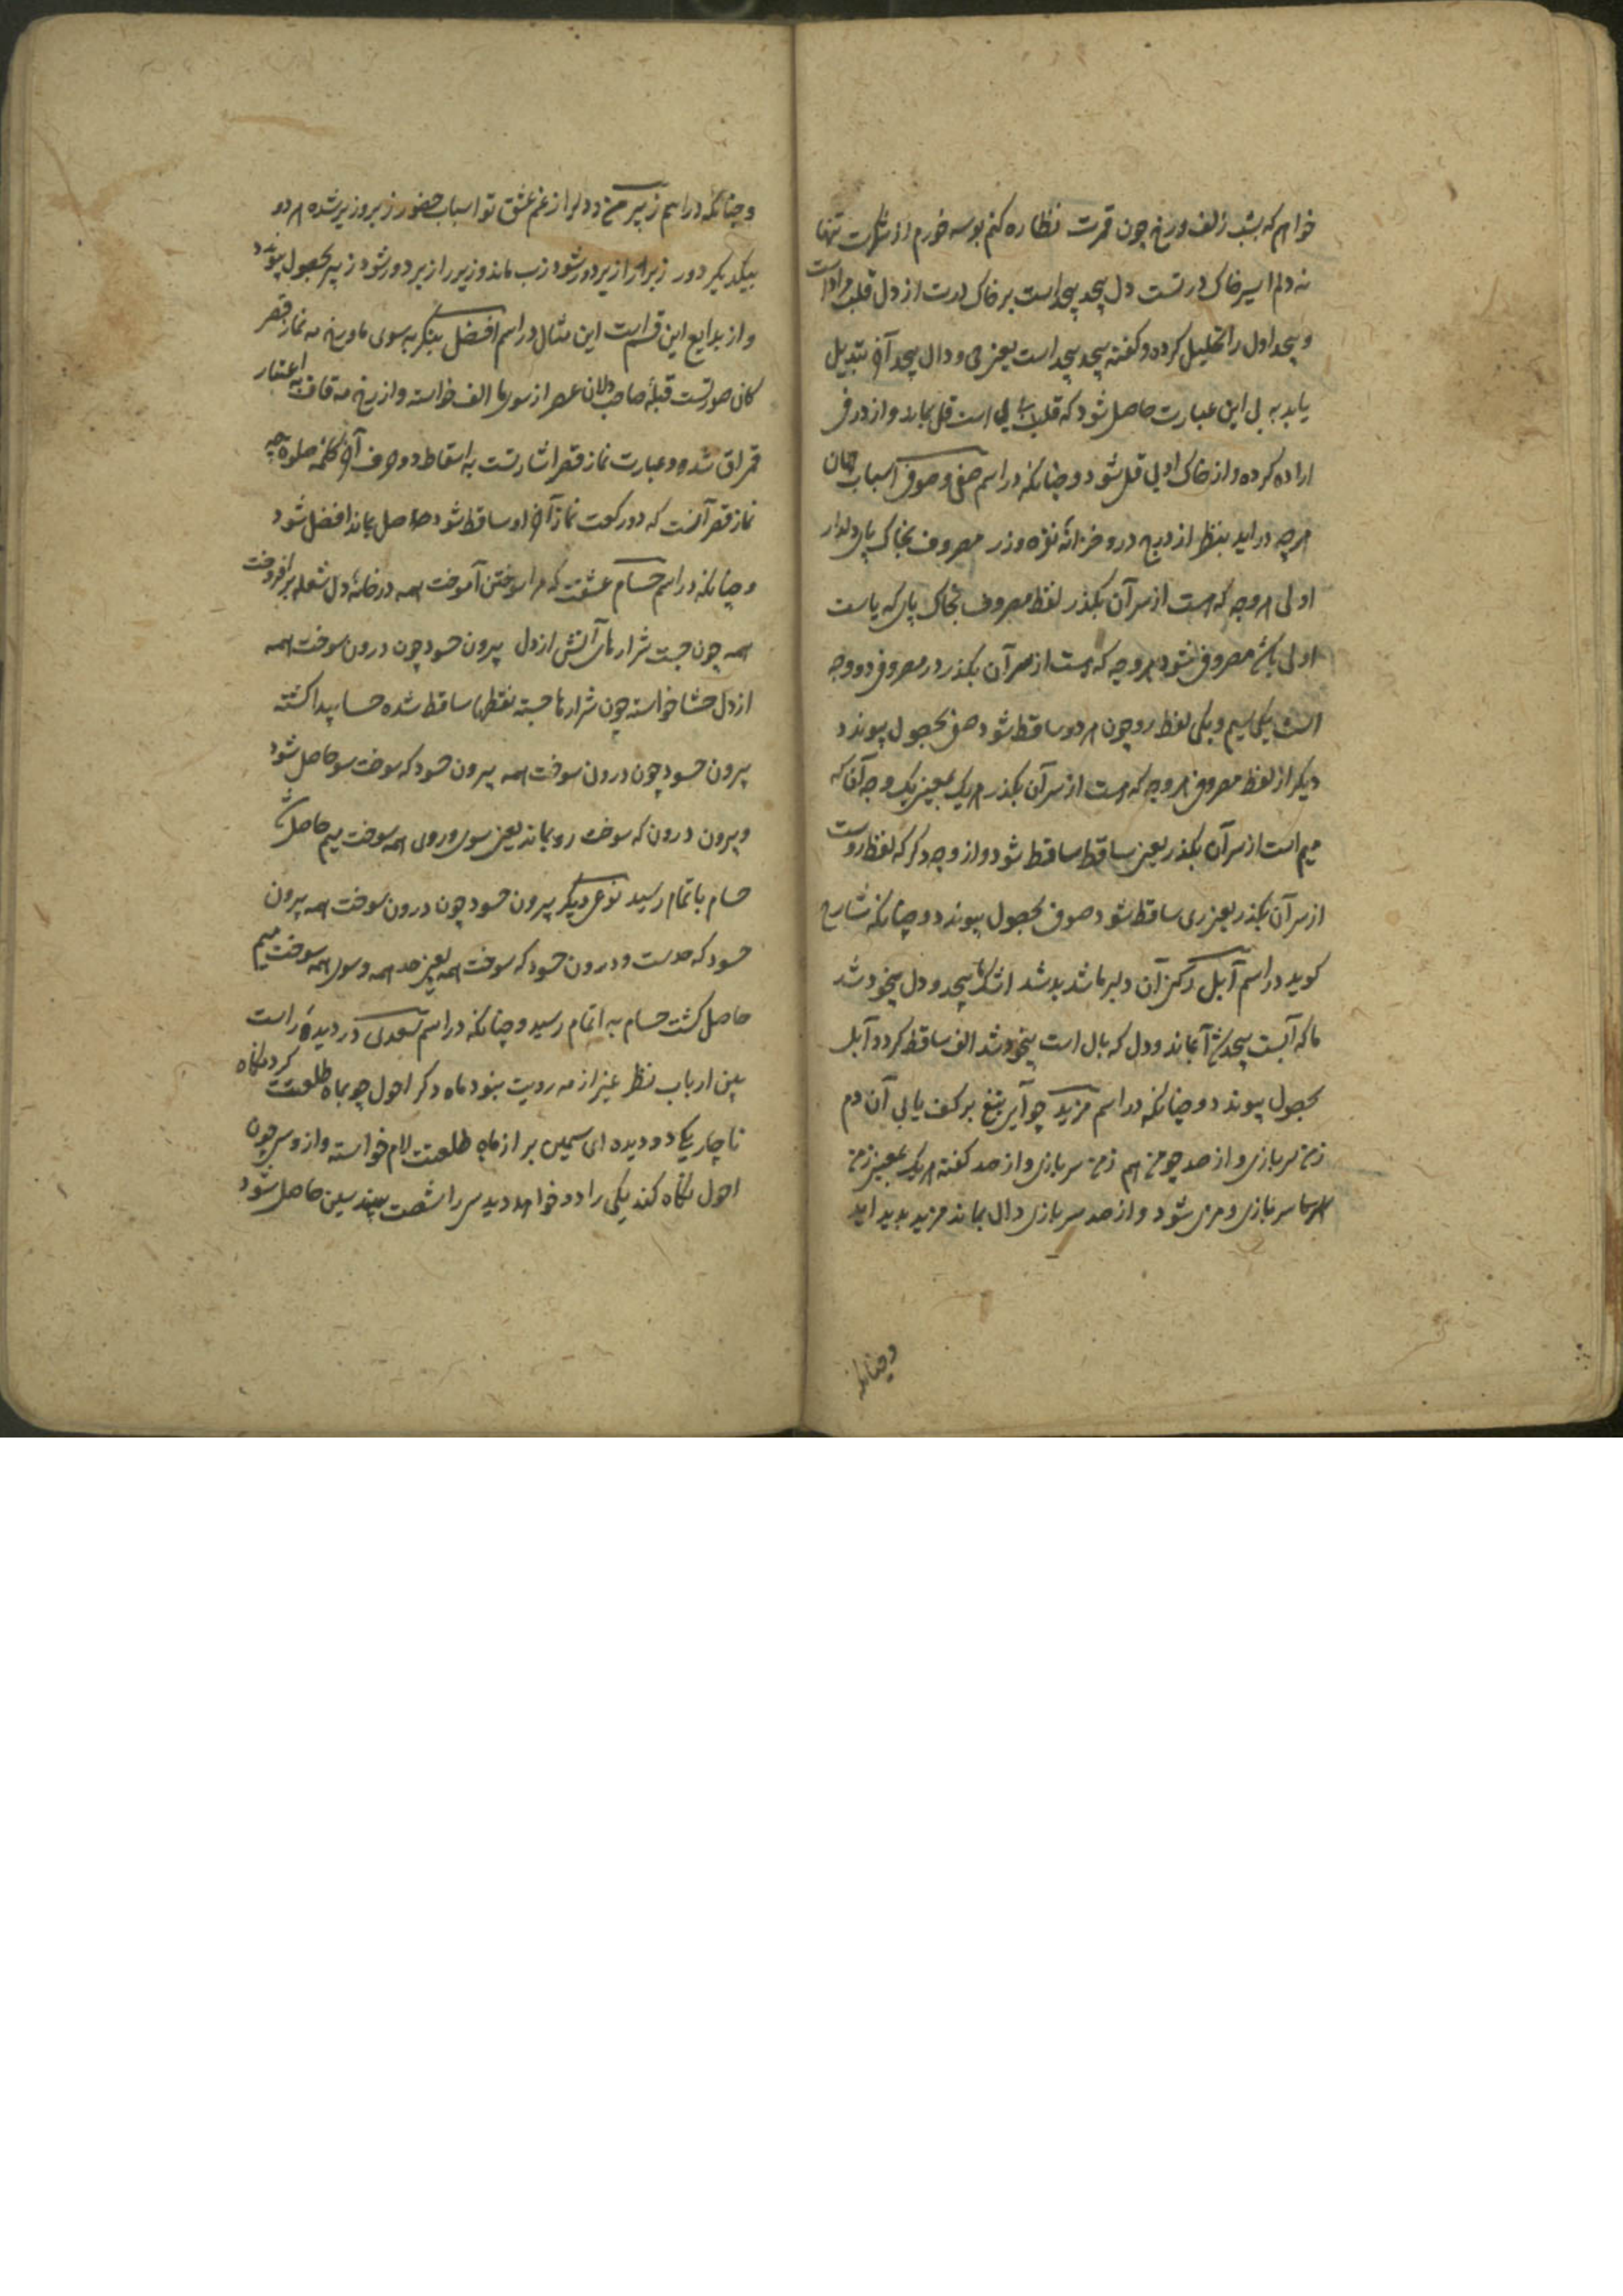 خواهم که بشب زلف و رخ چون قمرت نظاره کنم بوسه خورم از شکرت تنها
نه دلم اسیر خاک در تست دل بیحد بیحد است بر خاک درت از دل قلب مراد است
و بیحد اول را تحلیل کرده و گفته بیحد بیحد است یعنی بی و دال بیحد آن تبدیل
یابد به ل این عبارت حاصل شود که قلب بی لی است قل بماند و از در فی
اراده کرده و از خاک اولی قل شود و چنانکه در اسم صفی و صوفی اسباب جهان
هرچه دراید بنظر از درج در و خزانه نقره و زر مصروف بخاک پای دلدار
اولی هر وجه که هست از سر آن بگذر لفظ مصروف بخاک پای که یاست
اولی باشد مصروفی شود هر وجه که هست از سر آن بگذر در مصروفی دو وجه
است یکی میم و یکی لفظ رو چون هر دو ساقط شود صفی بحصول پیوندد
دیگر از لفظ مصروفی هر وجه که هست از سر آن بگذر هر یک بمعنی یک وجه آن که
میم است از سر آن بگذر یعنی ساقط ساقط شود و از وجه دگر که لفظ روست
از سر آن بگذر یعنی ری ساقط شود صوفی بحصول پیوندد و چنانکه شارح
گوید در اسم آبل رکن آن دلبر ما شد بدشد اشک ما بیحد و دل بیخود شد
ما که آبست بیحدش آ بماند و دل که بال است بیخود شد الف ساقط کردد آبل
بحصول پیوندد و چنانکه در اسم مزید چو آیی تیغ بر کف یابی آن دم
زمن سربازی و از صد چو من هم زمن سربازی و از صد گفته هر یک بمعنی زمن
هر سا سربازی و مزی شود و از صد سربازی دال بماند مزید بدید اید
و چنانکه
و چنانکه در اسم زبیر من و دلرا از غم عشق تو اسباب حضور زبر و زیر شده هر دو
بیکدیگر دور زبر را از یر دور شود زب ماند و زیر را از یر دور شود زبیر بحصول پیوندد
و از بدایع این قسم است این مثال در اسم افضل بنگر به سوی ما و رخ مه نماز قصر
کان صورتست قبلهٔ صاحب دلان عصر از سوی ما الف خواسته و از رخ مه قاف به اعتبار
قمر اق شده و عبارت نماز قصر اشارتست به اسقاط دو حرف آخر کلمه صلوة چه
نماز قصر آنست که دو رکعت نماز آخر او ساقط شود حاصل بماند افضل شود
و چنانکه در اسم حسام عشقت که مرا سوختن آموخت همه در خانهٔ دل شعله برافروخت
همه چون جست شرارهای آتش از دل بیرون حسود چون درون سوخت همه
از دل حشا خواسته چون شرارها جسته نقطها ساقط شده حسا پیدا گشته
بیرون حسود چون درون سوخت همه بیرون حسود که سوخت سو حاصل شود
و بیرون درون که سوخت رو بماند یعنی سوی و روی همه سوخت میم حاصل شد
حسام باتمام رسید نوعی دیگر بیرون حسود چون درون سوخت همه بیرون
حسود که حدست و درون حسود که سوخت همه یعنی حد همه و سوی همه سوخت میم
حاصل گشت حسام به اتمام رسید و چنانکه در اسم سعدی در دیدهٔ راست
بین ارباب نظر غیر از مه رویت ننود ماه دگر احول چو بماه طلعتت کرد نگاه
ناچار یکی دو دیده ای سیمین بر از ماه طلعتت لام خواسته و از و سی چون
احول نگاه کند یکی را دو خواهد دید سی را شصت بیند سین حاصل شود